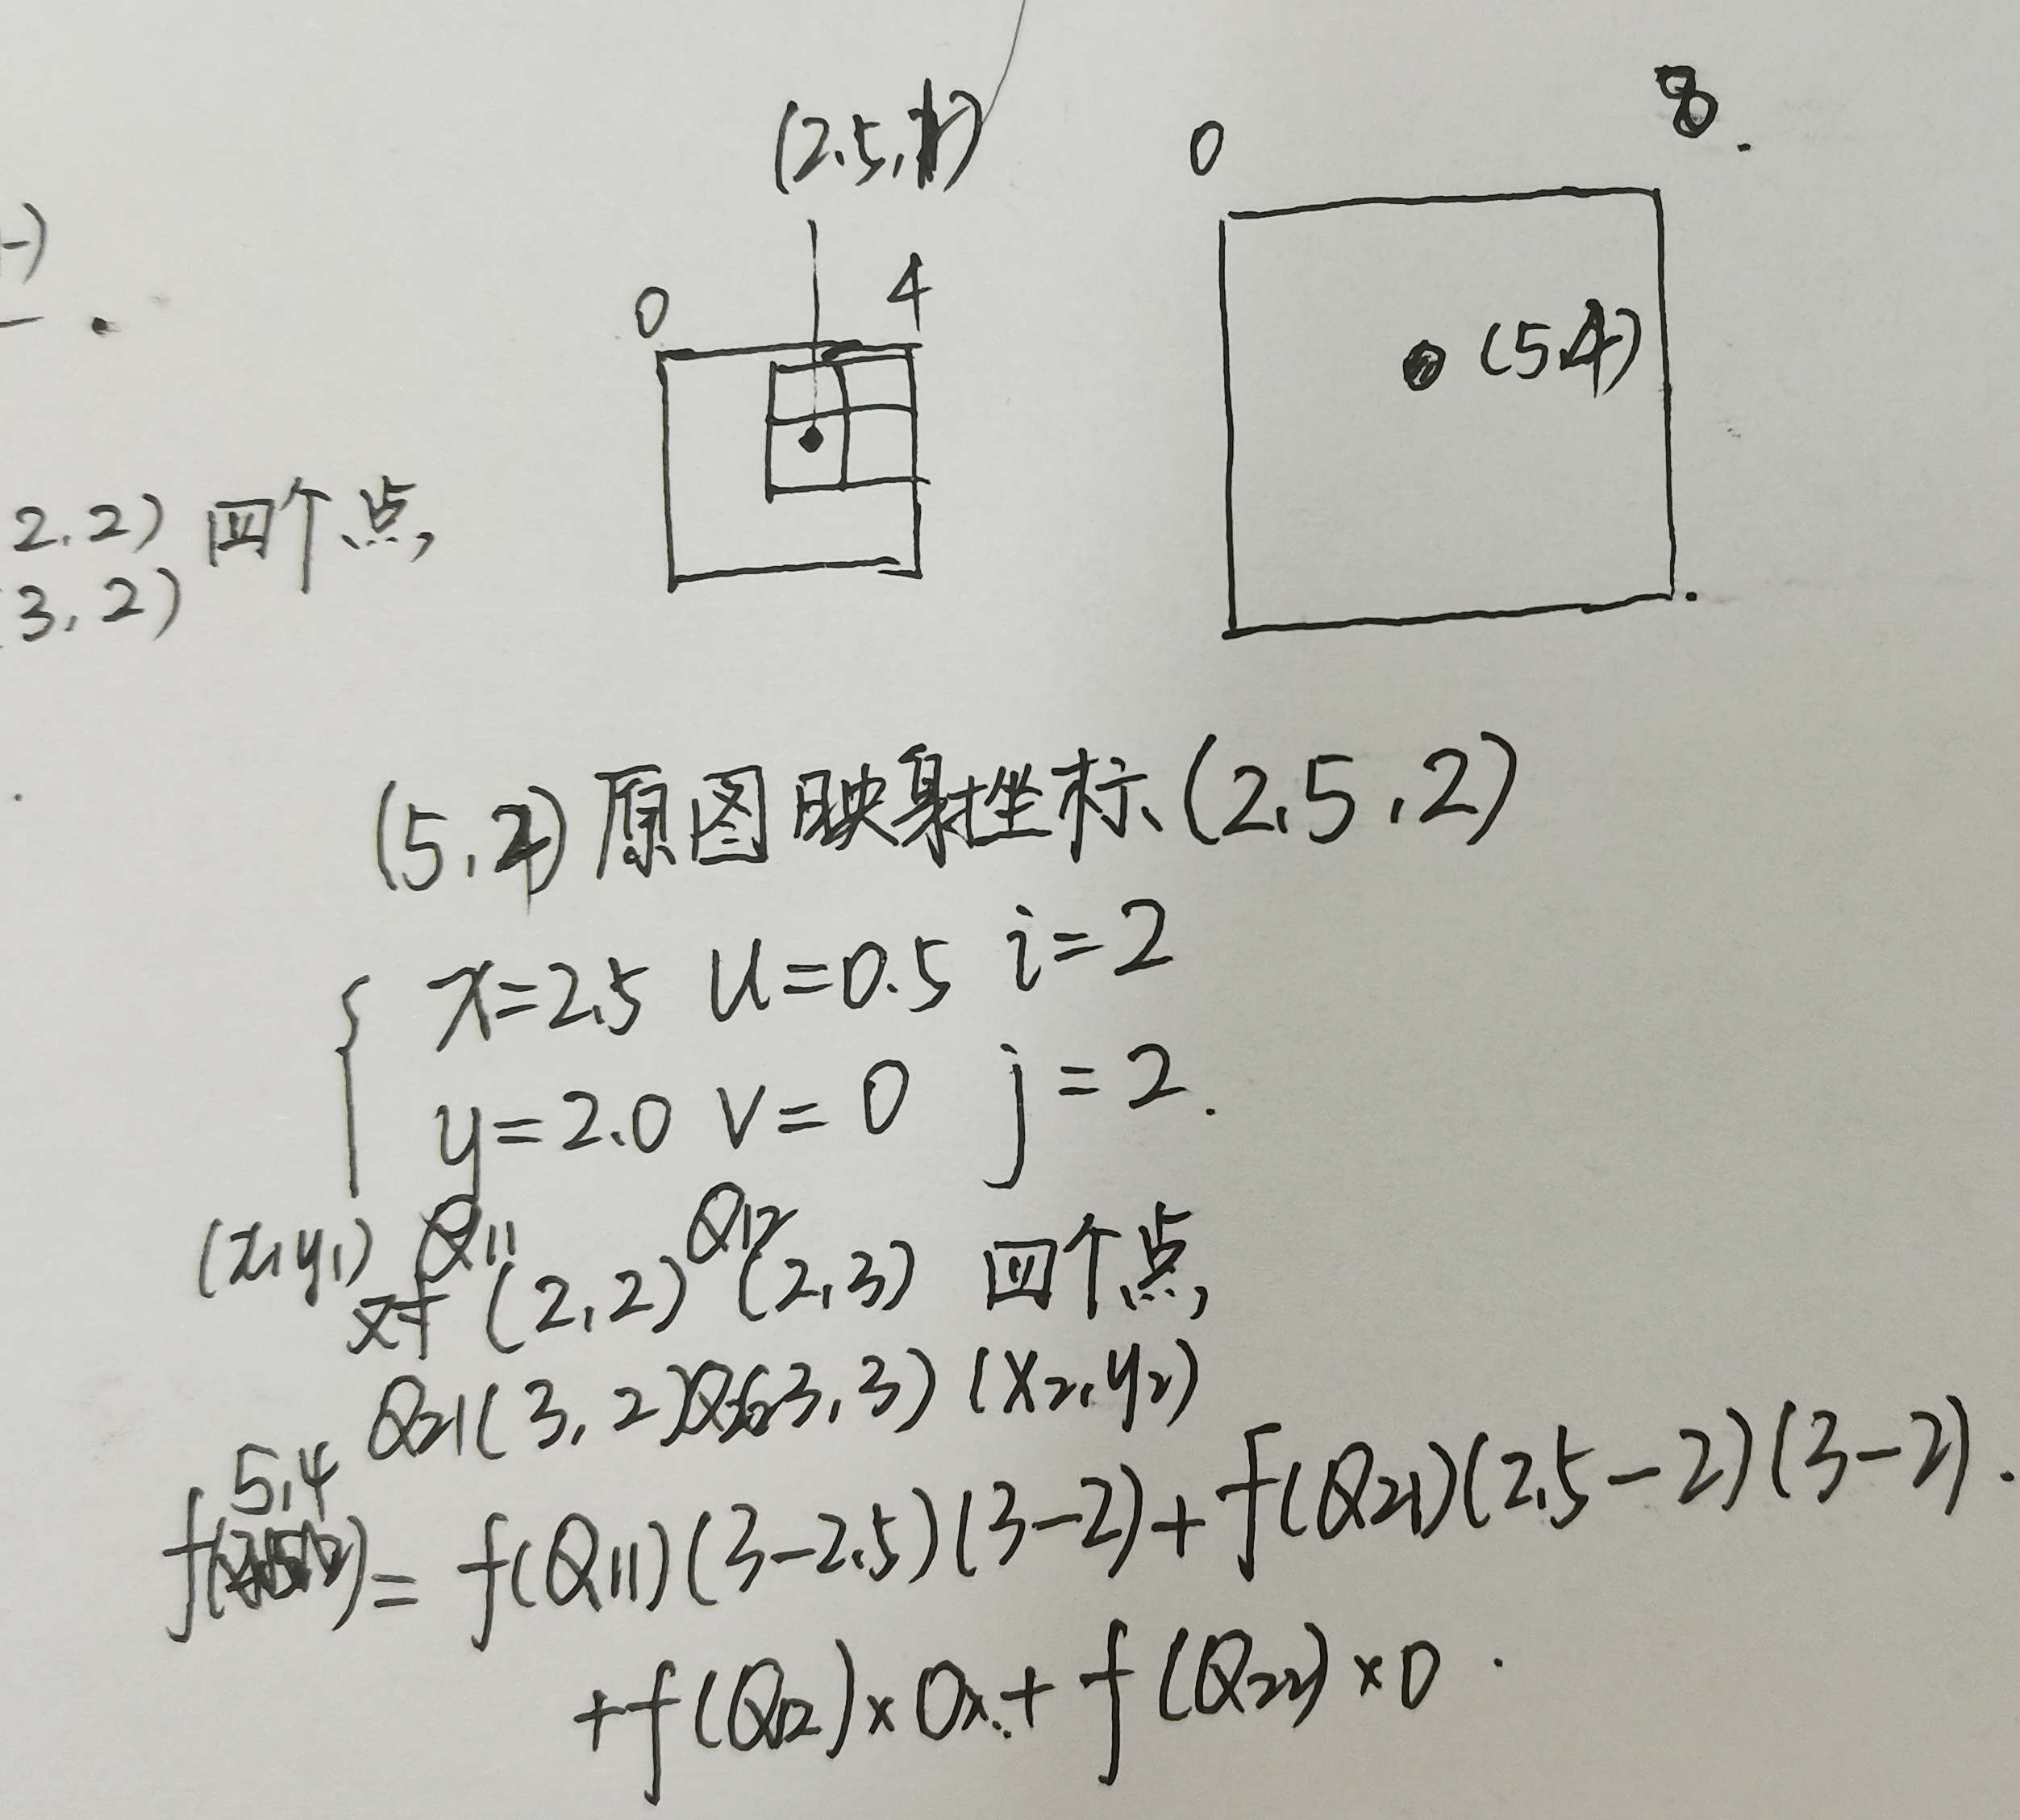 (2.5, )
0 8
0 4
(5,4)
2,2) 四个点,
3,2)
(5,4) 原图映射坐标 (2.5,2)
x=2.5 u=0.5 i=2
y=2.0 v=0 j=2.
(x1,y1) Q11 Q12
对 (2,2) (2,3) 四个点,
Q21(3,2) Q22(3,3) (x2,y2)
5,4
f( )= f(Q11)(3-2.5)(3-2)+f(Q21)(2.5-2)(3-2).
+f(Q12)×0x.+f(Q22)×0.